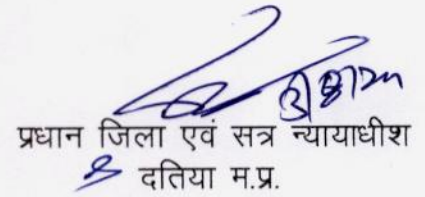 प्रधान जिला एवं सत्र न्यायाधीश
दतिया म.प्र.